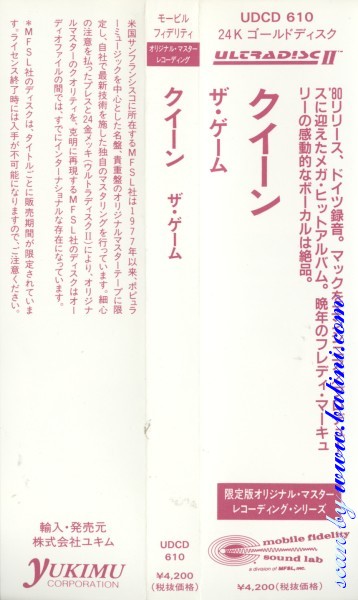 UDCD 610
24K ゴールドディスク
ULTRADISC II
'80リリース、ドイツ録音。マックを
スに迎えたメガ・ヒットアルバム。晩年のフレディ・マーキュ
リーの感動的なボーカルは絶品。
クイーン
ザ・ゲーム
限定版オリジナル・マスター
レコーディング・シリーズ
mobile fidelity
sound lab
a division of MFSL, inc.
¥4,200(税抜価格)
モービル
フィデリティ
オリジナル・マスター
レコーディング
クイーン ザ・ゲーム
UDCD
610
¥4,200
(税抜価格)
米国サンフランシスコに所在するMFSL社は1977年以来、ポピュラ
ーミュージックを中心とした名盤、貴重盤のオリジナルマスターテープに限
定し、自社で最新技術を施した独自のマスタリングを行っています。細心
の注意を払ったプレスと24金メッキ(ウルトラディスクII)により、オリジナ
ルマスターのクオリティを、克明に再現するMFSL社のディスクはオー
ディオファイルの間では、すでにインターナショナルな存在になっています。
＊MFSL社のディスクは、タイトルごとに販売期間が限定されていま
す。ライセンス終了時には入手が不可能になりますので、ご注意ください。
輸入・発売元
株式会社ユキム
YUKIMU
CORPORATION
scan by www.batini.com